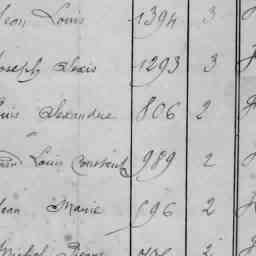 Jean Louis 1394 3
Joseph Alexis 1293 3
Louis Alexandre 806 2
Jean Louis Constant 989 2
Jean Marie 696 2
Michel